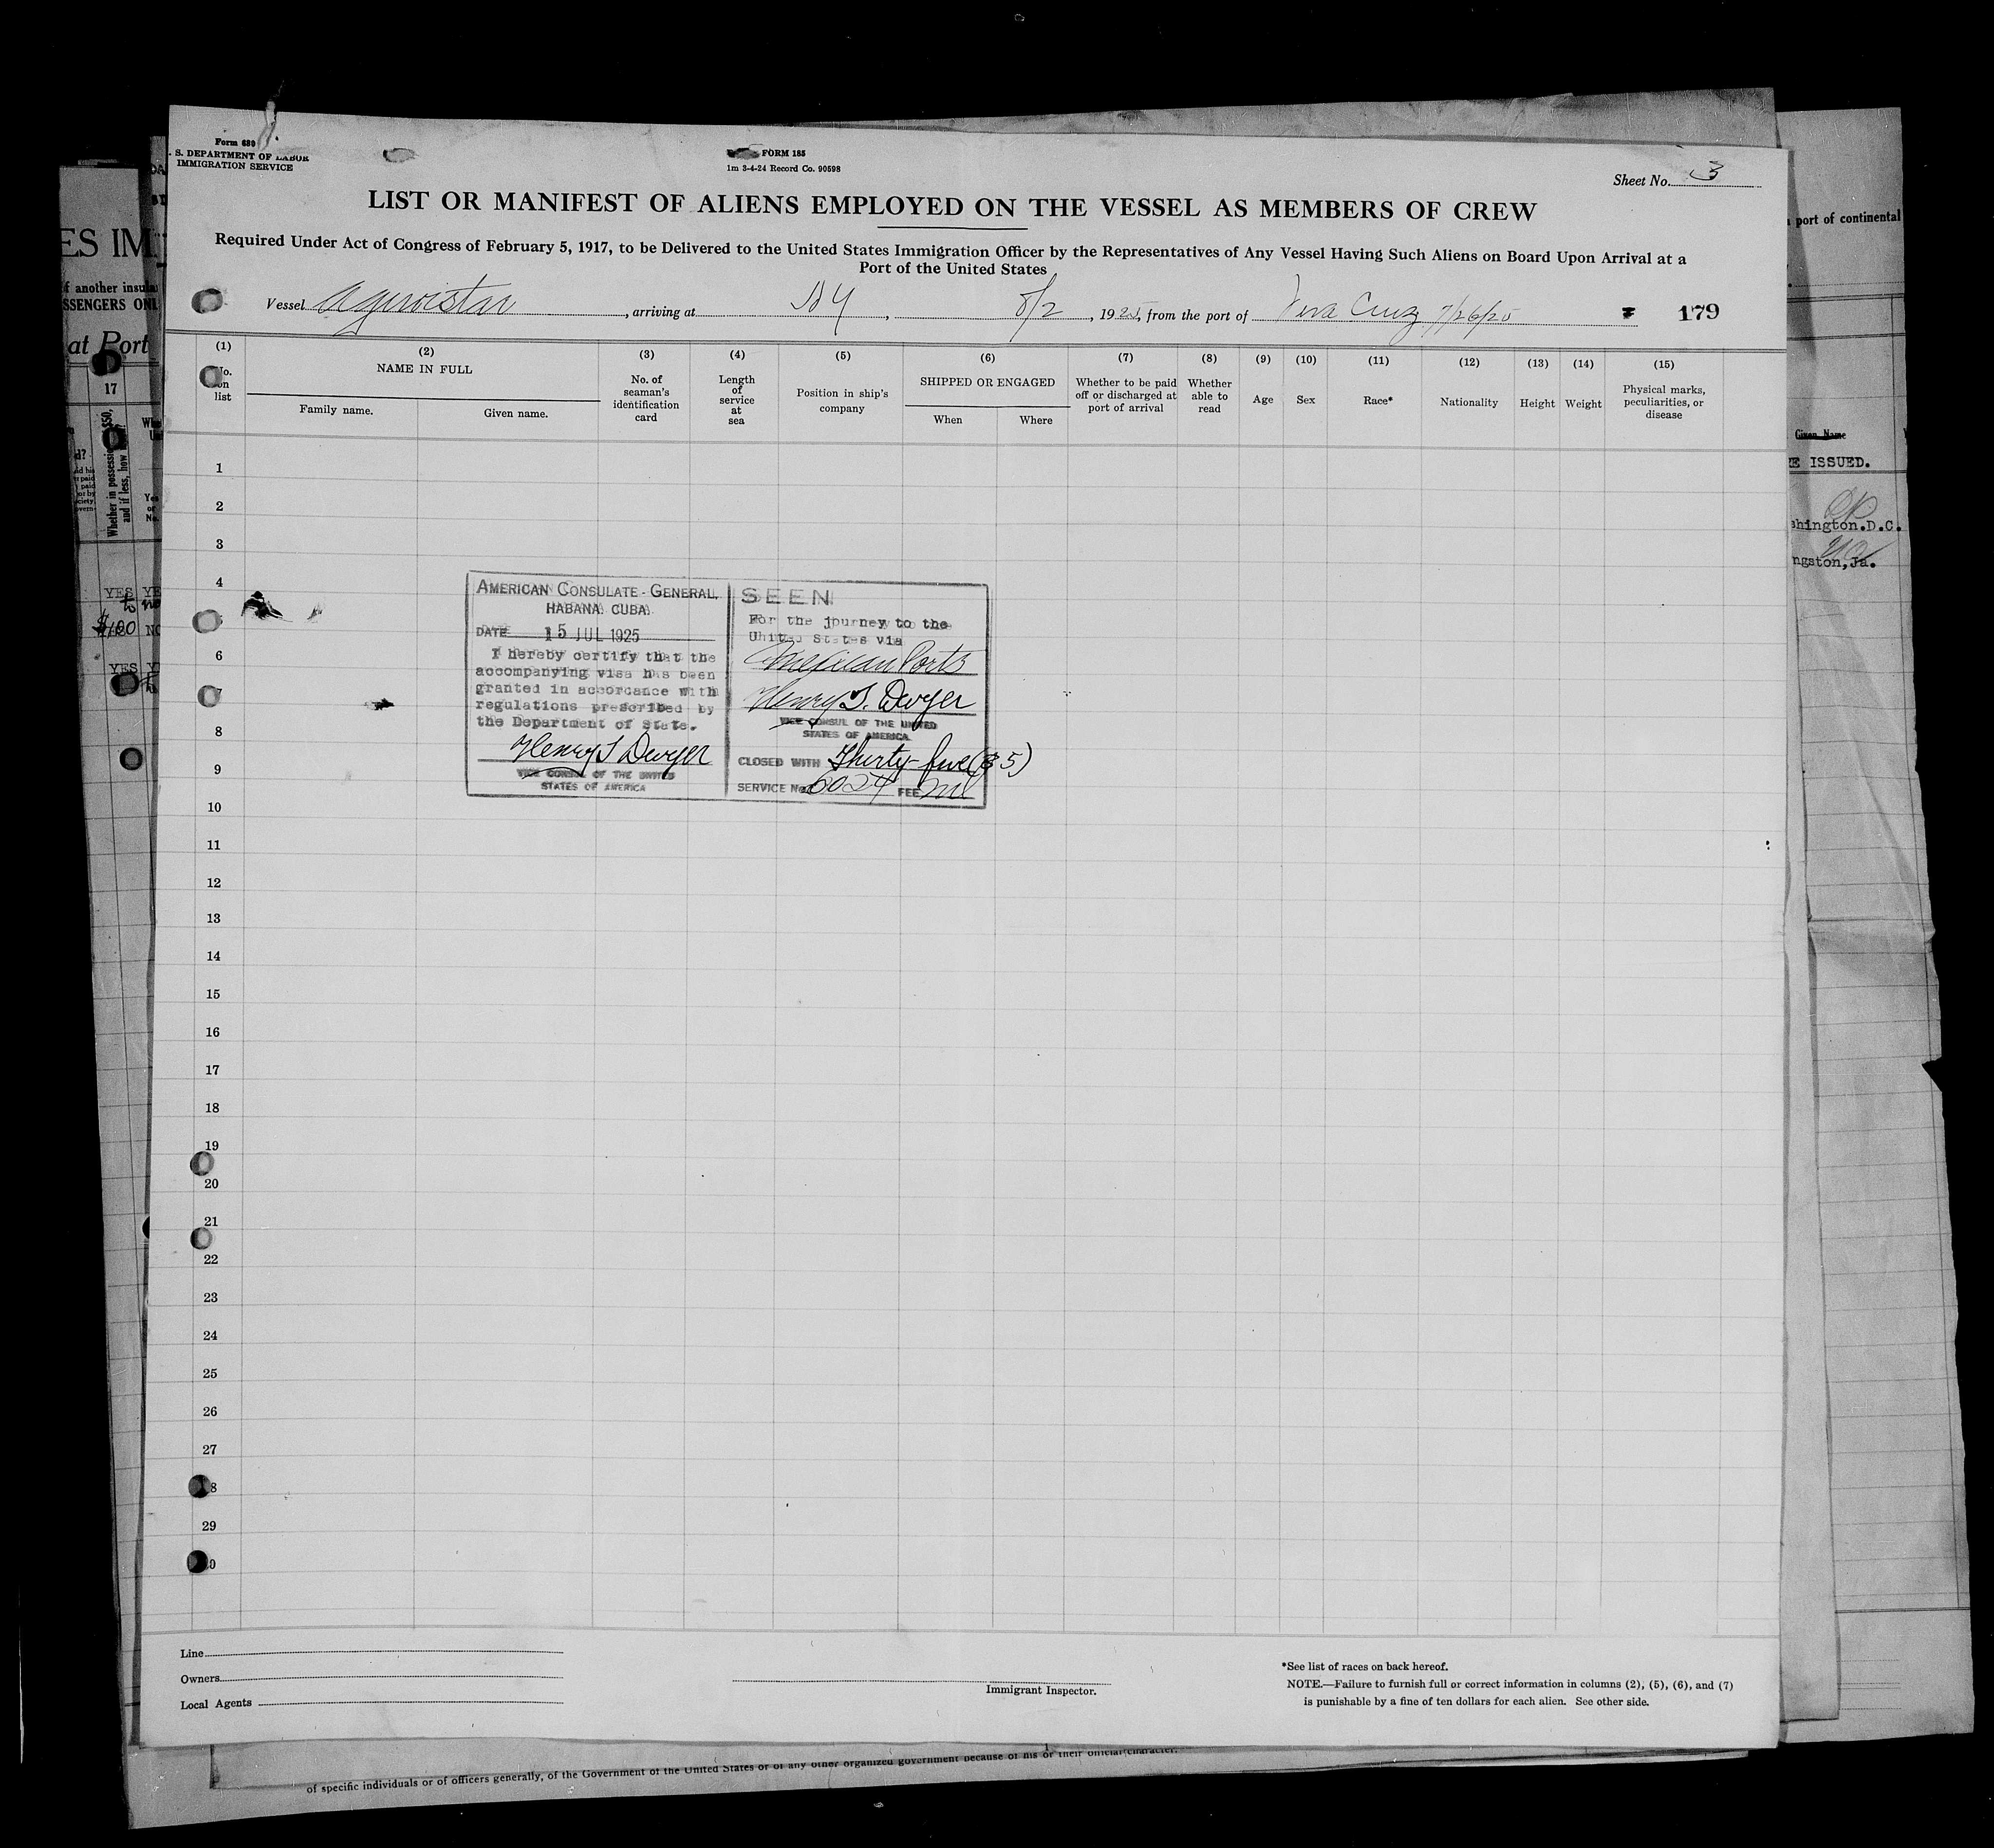 Form 680
S. DEPARTMENT OF LABOR
IMMIGRATION SERVICE
FORM 185
1m 3-4-24 Record Co. 90598
Sheet No. 3
LIST OR MANIFEST OF ALIENS EMPLOYED ON THE VESSEL AS MEMBERS OF CREW
Required Under Act of Congress of February 5, 1917, to be Delivered to the United States Immigration Officer by the Representatives of Any Vessel Having Such Aliens on Board Upon Arrival at a
Port of the United States
Vessel Agwistar, arriving at NY, 8/2, 1925, from the port of Vera Cruz 7/26/25 179
(1) (2) (3) (4) (5) (6) (7) (8) (9) (10) (11) (12) (13) (14) (15)
No. on list
NAME IN FULL
Family name. Given name.
No. of seaman's identification card
Length of service at sea
Position in ship's company
SHIPPED OR ENGAGED
When Where
Whether to be paid off or discharged at port of arrival
Whether able to read
Age
Sex
Race*
Nationality
Height
Weight
Physical marks, peculiarities, or disease
1
2
3
4
6
7
8
9
10
11
12
13
14
15
16
17
18
19
20
21
22
23
24
25
26
27
8
29
0
AMERICAN CONSULATE-GENERAL,
HABANA, CUBA.
DATE 15 JUL 1925
I hereby certify that the
accompanying visa has been
granted in accordance with
regulations prescribed by
the Department of State.
Henry T Dwyer
VICE CONSUL OF THE UNITED
STATES OF AMERICA
SEEN
For the journey to the
United States via
Mexican Ports
Henry T. Dwyer
VICE CONSUL OF THE UNITED
STATES OF AMERICA
CLOSED WITH Thirty-five (35)
SERVICE No. 6024 FEE nil
Line
Owners
Local Agents
Immigrant Inspector.
*See list of races on back hereof.
NOTE.—Failure to furnish full or correct information in columns (2), (5), (6), and (7)
is punishable by a fine of ten dollars for each alien. See other side.
ES IM
f another insula
SSENGERS ONL
at Port
17
Whether in possession of $50,
and if less, how
YES YE
$100 NO
YES Y
port of continental
Given Name
E ISSUED.
shington.D.C.
ngston,Ja.
of specific individuals or of officers generally, of the Government of the United States or of any other organized government because of his or their official character.